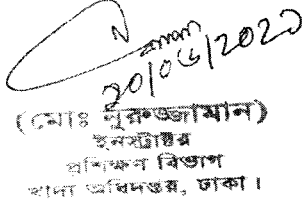 20/06/2023
(মোঃ নুরুজ্জামান)
ইনস্ট্রাক্টর
প্রশিক্ষণ বিভাগ
খাদ্য অধিদপ্তর, ঢাকা।